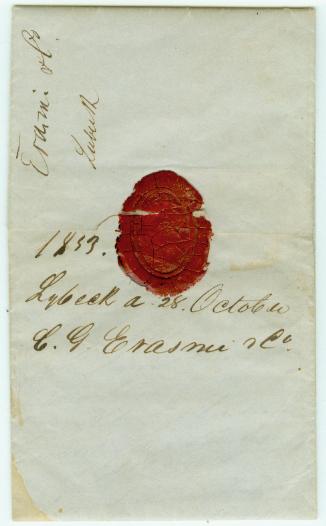 Erasmi & Co
Lubeck
1853.
Lybeck a 28. October
C. G. Erasmi & Co.